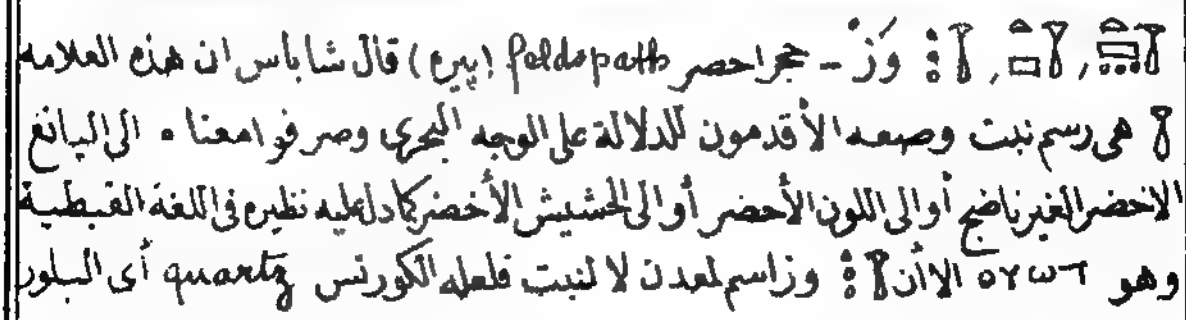 𓇅 , 𓇅 , 𓇅 : وَزْ - حجر احصر feldspath (پیره) قال شاباس ان هذه العلامه
𓇅 هى رسم نبت وصعه الأقدمون للدلالة على الوجه البحرى وصرفوا معناه الى اليانغ
الاخضر الغير ناضج أو الى اللون الأحضر أو الى الحشيش الأخضر كما دل عليه نظيره فى اللغة القبطية
وهو ⲟⲩⲱⲧ الا أن 𓇅 : وز اسم لمعدن لا لنبت فلعله الكورتس quartz أى البلور